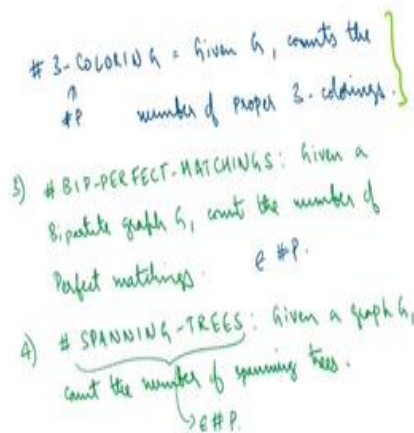 # 3-COLORING = Given G, counts the
↑
#P number of proper 3-colorings.
3) # BIP-PERFECT-MATCHINGS: Given a
Bipartite graph G, count the number of
Perfect matchings. ∈ #P.
4) # SPANNING-TREES: Given a graph G,
count the number of spanning trees.
↳ ∈ #P.